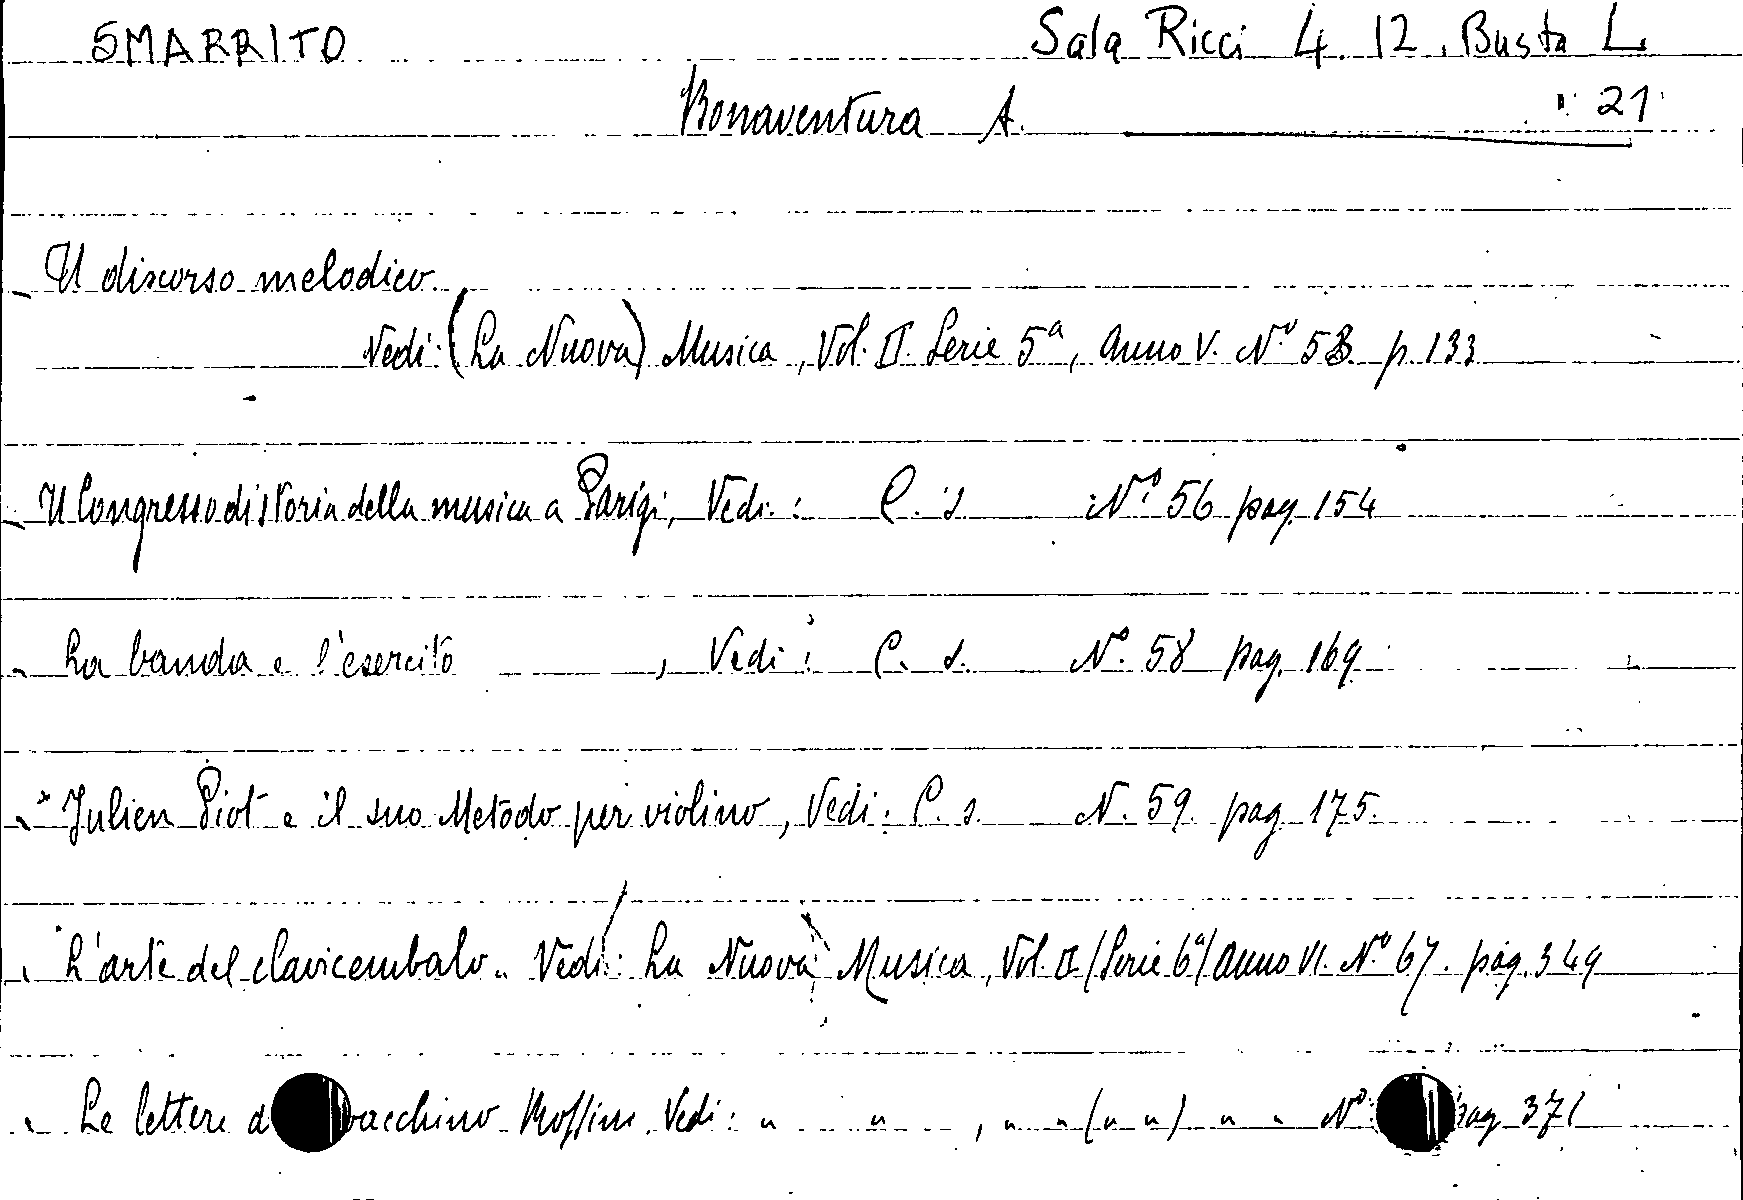 SMARRITO Sala Ricci 4. 12. Busta L
Bonaventura A. " 21
- Il discorso melodico.
Vedi: (La Nuova) Musica, Vol. II. Serie 5ª, Anno V. Nº 53. p. 133
- Il Congresso di storia della musica a Parigi, Vedi: C. s. Nº 56 pag. 154
- La banda e l'esercito, Vedi: C. s. Nº. 58 pag. 169
- Julien Piot e il suo Metodo per violino, Vedi: C. s. N. 59. pag. 175.
- L'arte del clavicembalo. Vedi: La Nuova Musica, Vol. II (Serie 6ª) Anno VI. Nº 67. pag. 349
- Le lettere d oacchino Rossini. Vedi: " " , " " (" ") " " Nº pag 371